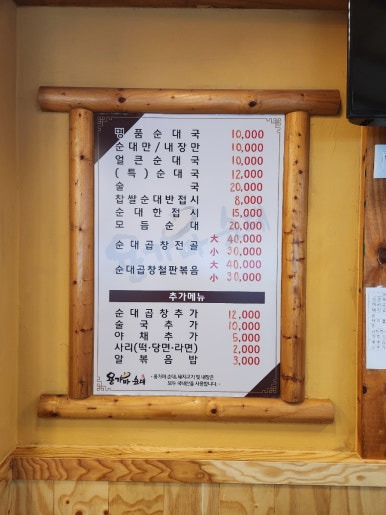 명품순대국 10,000
순대만/내장만 10,000
얼큰순대국 10,000
(특)순대국 12,000
술국 20,000
찹쌀순대반접시 8,000
순대한접시 15,000
모듬순대 20,000
순대곱창전골 大 40,000
小 30,000
순대곱창철판볶음 大 40,000
小 30,000
추가메뉴
순대곱창추가 12,000
술국추가 10,000
야채추가 5,000
사리(떡·당면·라면) 2,000
알볶음밥 3,000
용가마 순대
- 용가마 순대, 돼지고기 및 내장은
모두 국내산을 사용합니다. -